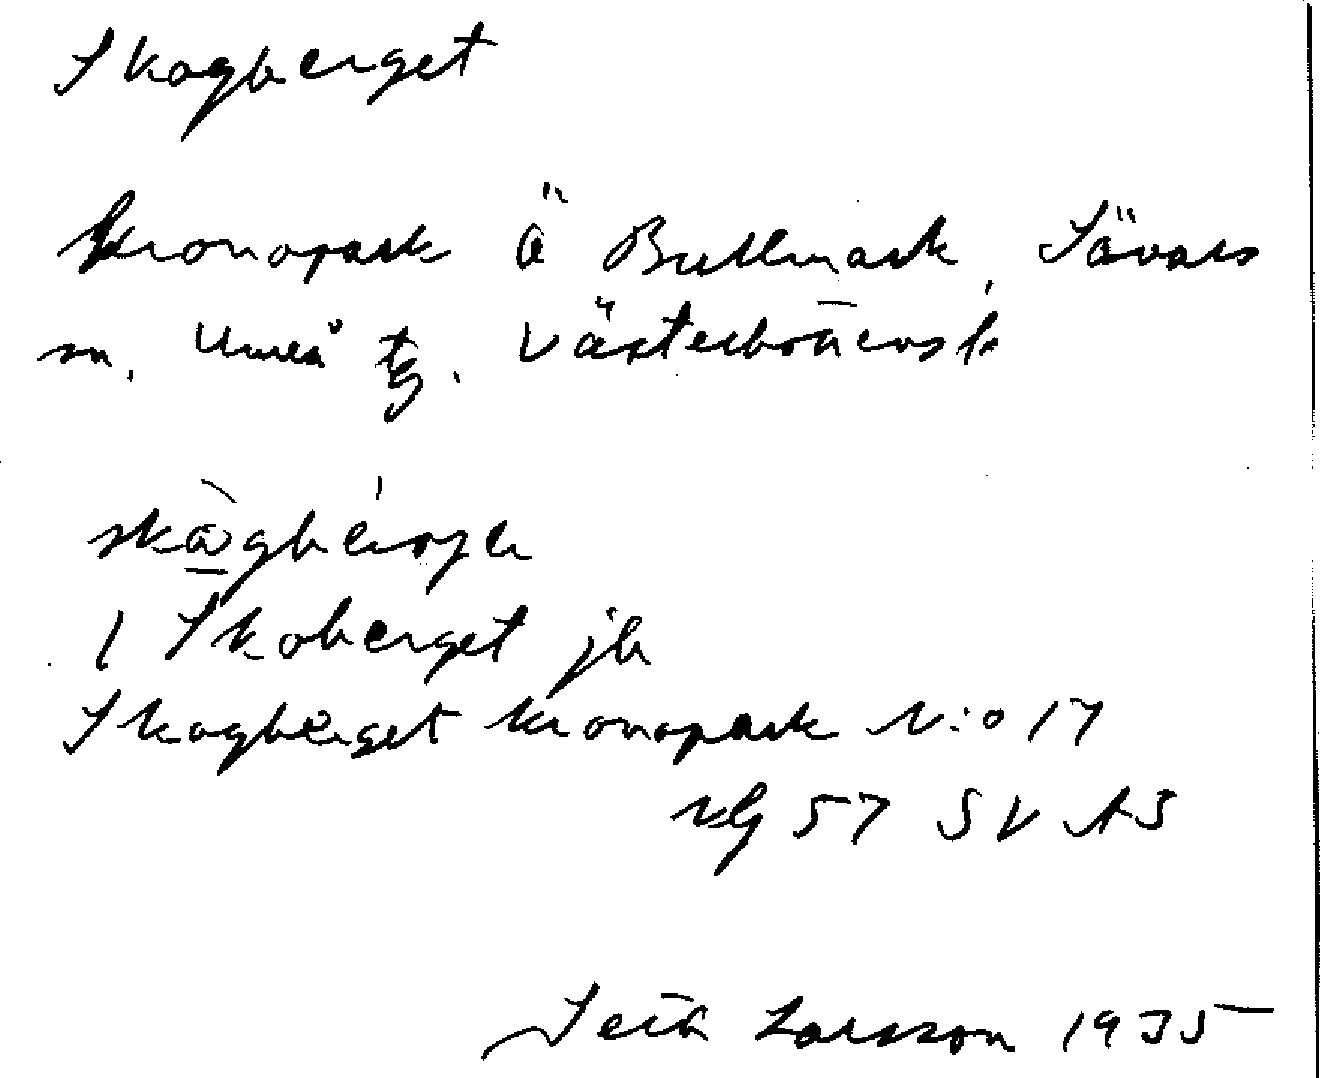 Skogberget
Kronopark Ö Bullmark, Sävars
sn, Umeå tg. Västerbottens l:
skògbérje
/ Skoberget jb
Skogberget kronopark N:o 17
57 SV
Seth Larsson 1935